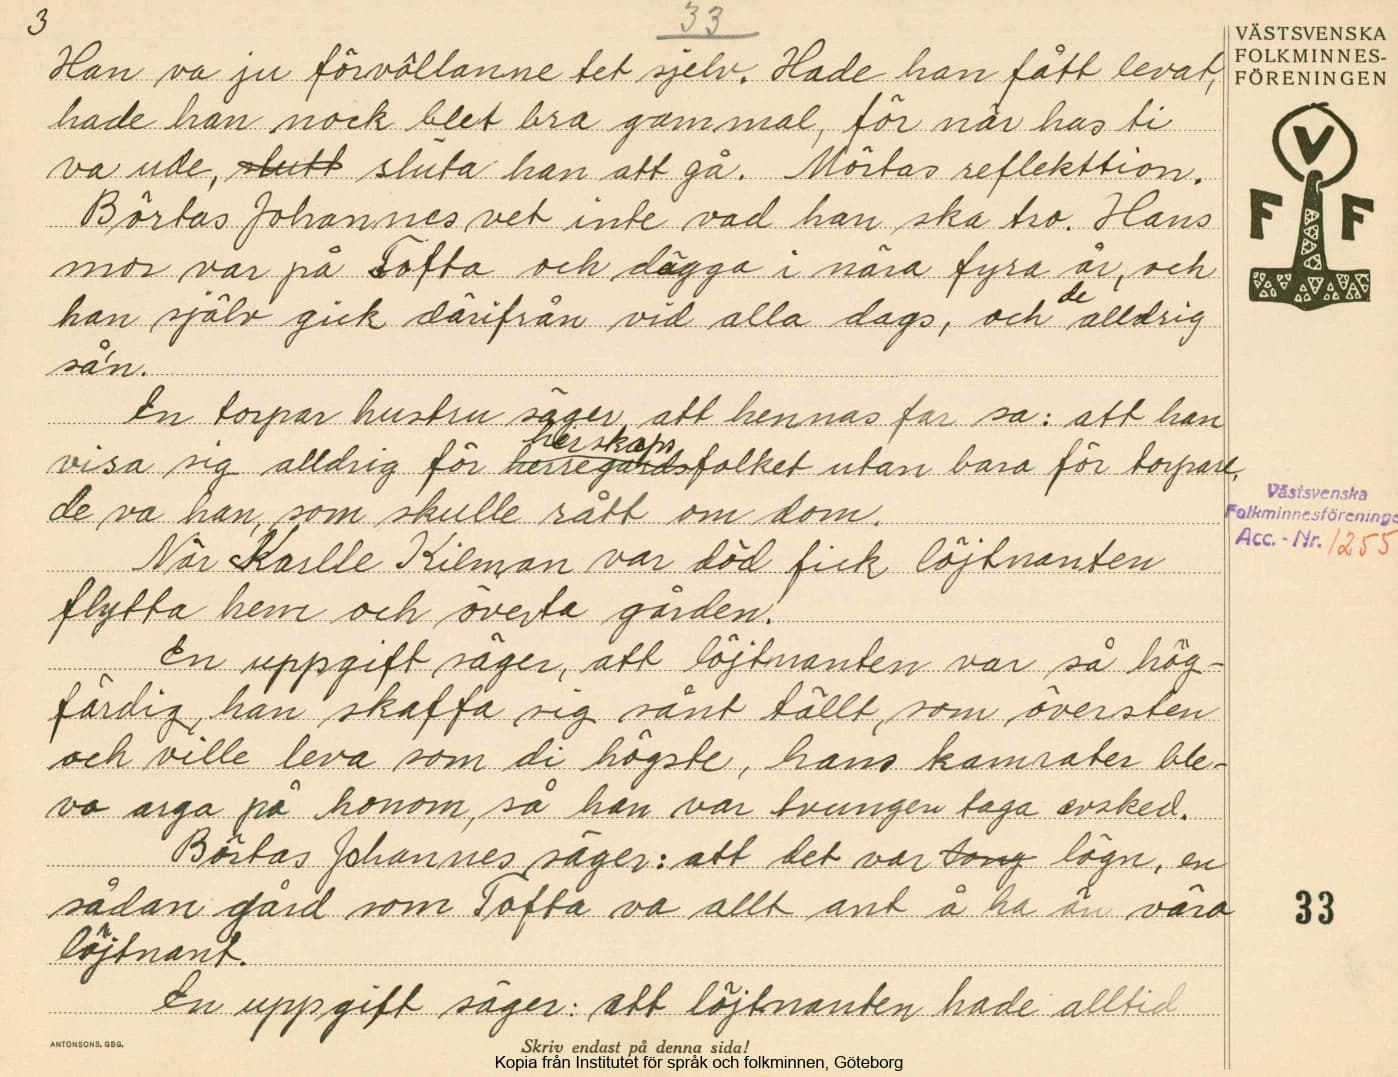 3
33
VÄSTSVENSKA
FOLKMINNES-
FÖRENINGEN
Han va ju förvållanne tet sjelv. Hade han fått levat,
hade han nock blet bra gammal, för när has ti
va ude, slutt sluta han att gå. Mörtas reflekttion.
Börtas Johannes vet inte vad han ska tro. Hans
mor var på Tofta och dägga i nära fyra år, och
han själv gick därifrån vid alla dags, och de alldrig
så'n.
En torpar hustru säger, att hennas far sa: att han
visa sig alldrig för herregårdsfolket utan bara för torpare,
herskaps
de va han, som skulle rått om dom.
När Karlle Kilman var död fick löjtnanten
flytta hem och överta gården.
En uppgift säger, att löjtnanten var så hög-
färdig, han skaffa sig sånt tällt, som översten
och ville leva som di högste, hans kamrater ble-
vo arga på honom, så han var tvungen taga avsked.
Börtas Johannes säger: att det var tong lögn, en
sådan gård som Tofta va allt ant å ha än våra
löjtnant.
En uppgift säger: att löjtnanten hade alltid
V
F F
Västsvenska
Folkminnesföreninge
Acc. - Nr. 1255
33
ANTONSONS, GBG.
Skriv endast på denna sida!
Kopia från Institutet för språk och folkminnen, Göteborg